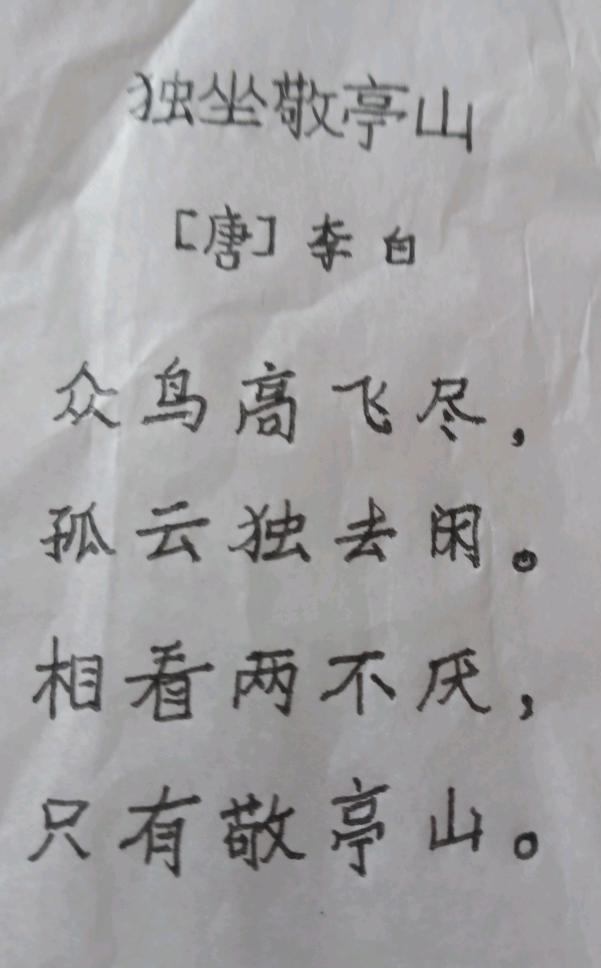 独坐敬亭山
[唐] 李白
众鸟高飞尽，
孤云独去闲。
相看两不厌，
只有敬亭山。